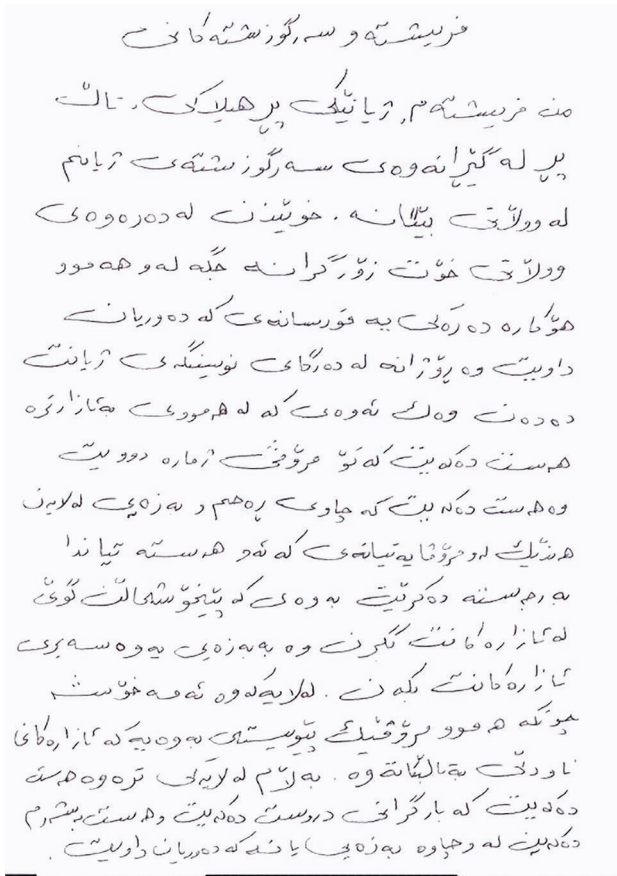 فریشتە و سەرگوزشتەکانی
من فریشتەم، ژیانێکی پڕ هیلاکی، تاڵ
پڕ لە گێڕانەوەی سەرگوزشتەی ژیانم
لە وولاتی بێگانە. خوێندن لە دەرەوەی
وولاتی خۆت زۆر گرانە جگە لەو هەموو
هۆکارە دەرەکی یە قورسانەی کە دەوریان
داویت وە ڕۆژانە لە دەرگای نوسینگەی ژیانت
دەدەن وەک ئەوەی کە لە هەمووی بەئازارترە
هەست دەکەیت کە تۆ مرۆڤی ژمارە دوویت
وە هەست دەکەیت کە چاوی ڕەحم و بەزەیی لەلایەن
هەندێک لەو مرۆڤایەتیانەی کە ئەو هەستە تیاندا
بەرجەستە دەکرێت بەوەی کە پێیخۆشحاڵن گوێ
لە ئازارەکانت بگرن وە بەبەزەیی یەوە سەیری
ئازارەکانت بکەن. لەلایەکەوە ئەمە خۆشە
چونکە هەموو مرۆڤێک پێویستی بەوەیە کە ئازارەکانی
ناودڵی بەتاڵبکاتەوە. بەلاّم لەلایەکی ترەوە هەست
دەکەیت کە بارگرانی دروست دەکەیت وهەست بەشەرم
دەکەیت لەو چاوە بەزەیی یانەی کە دەوریان داویت.